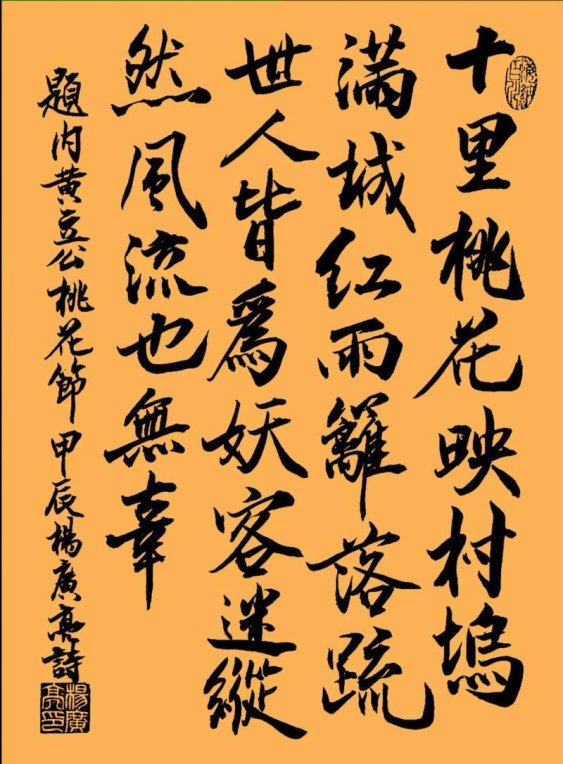 十里桃花映村塢
滿城紅雨籬落疏
世人皆爲妖容迷縱
然風流也無辜
題内黄立公桃花節甲辰楊廣亮詩
楊廣亮印